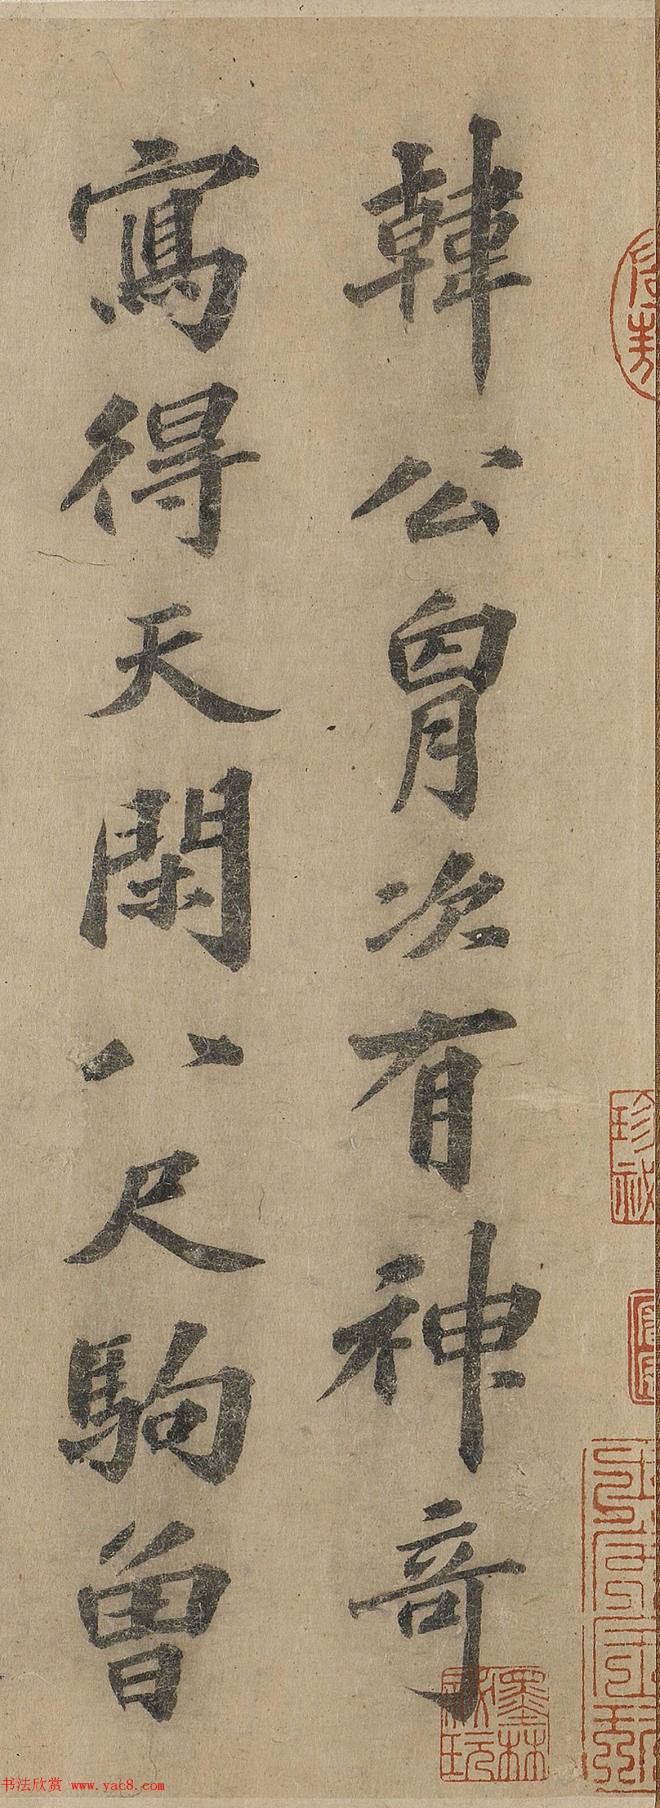 韓公胷次有神奇
寫得天閑八尺駒曾
珍祕
墨林祕玩
书法欣赏 www.yac8.com